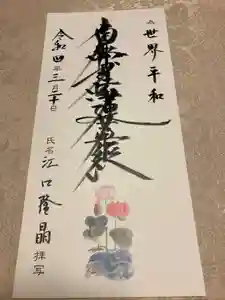 世界平和
南無妙法蓮華経
令和四年三月三十日
氏名 江口隆晶 拝写